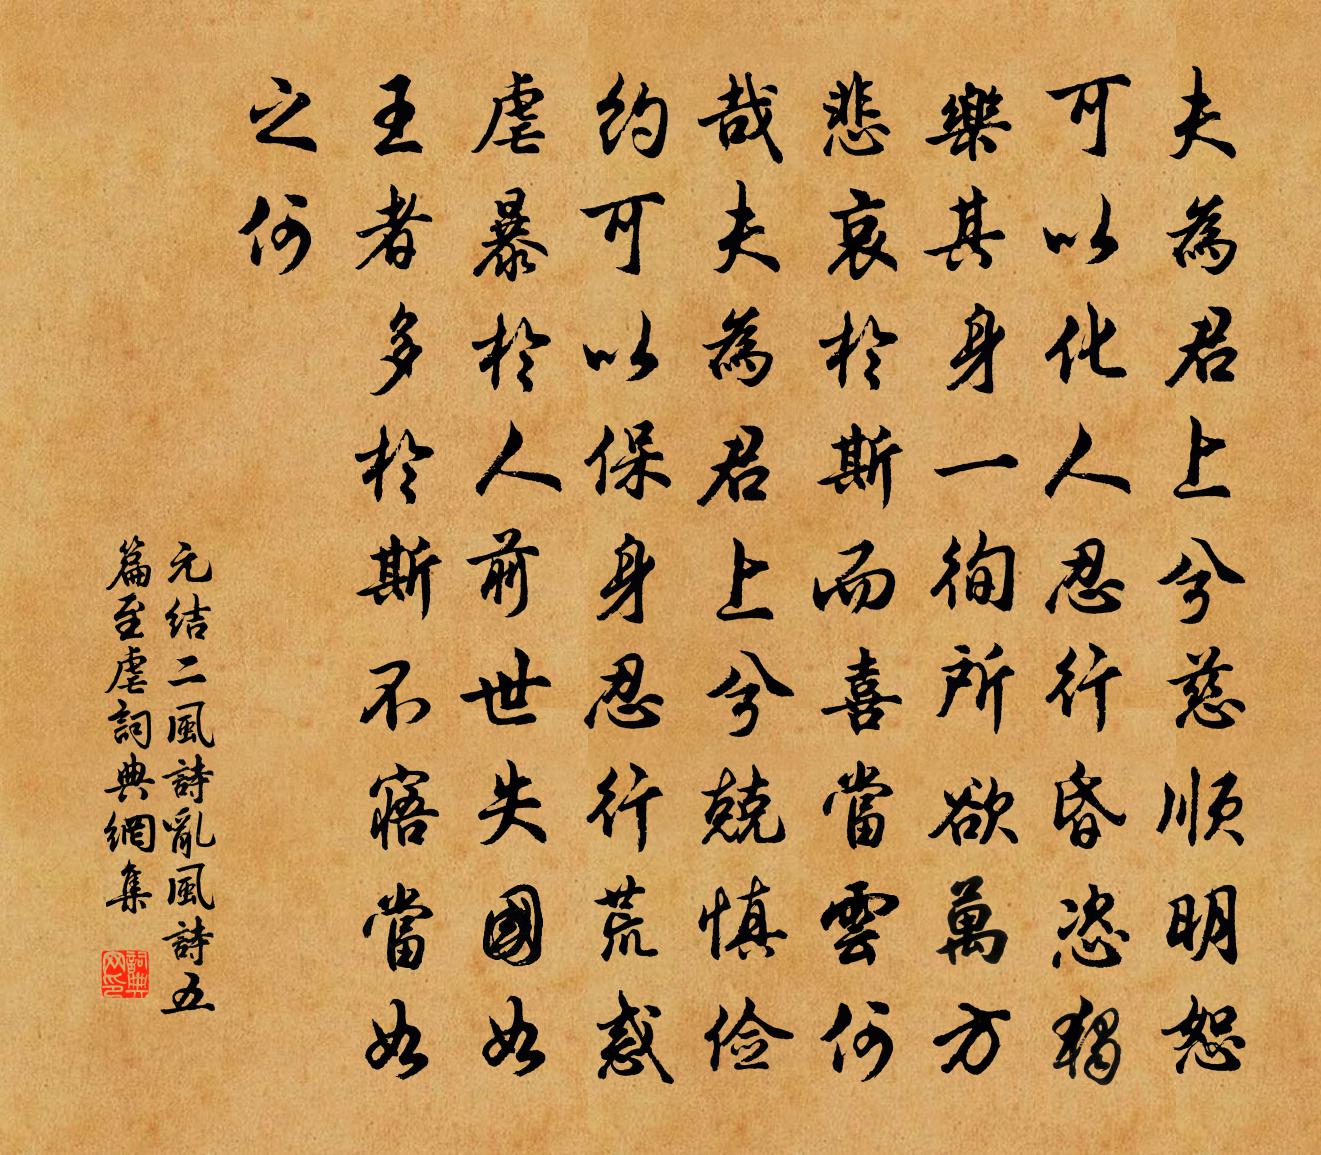 夫為君上兮慈順明恕
可以化人忍行昏恣獨
樂其身一徇所欲萬方
悲哀於斯而喜當雲何
哉夫為君上兮兢慎儉
約可以保身忍行荒惑
虐暴於人前世失國如
王者多於斯不寤當如
之何
元結二風詩亂風詩五
篇至虐詞典網集
詞典网印